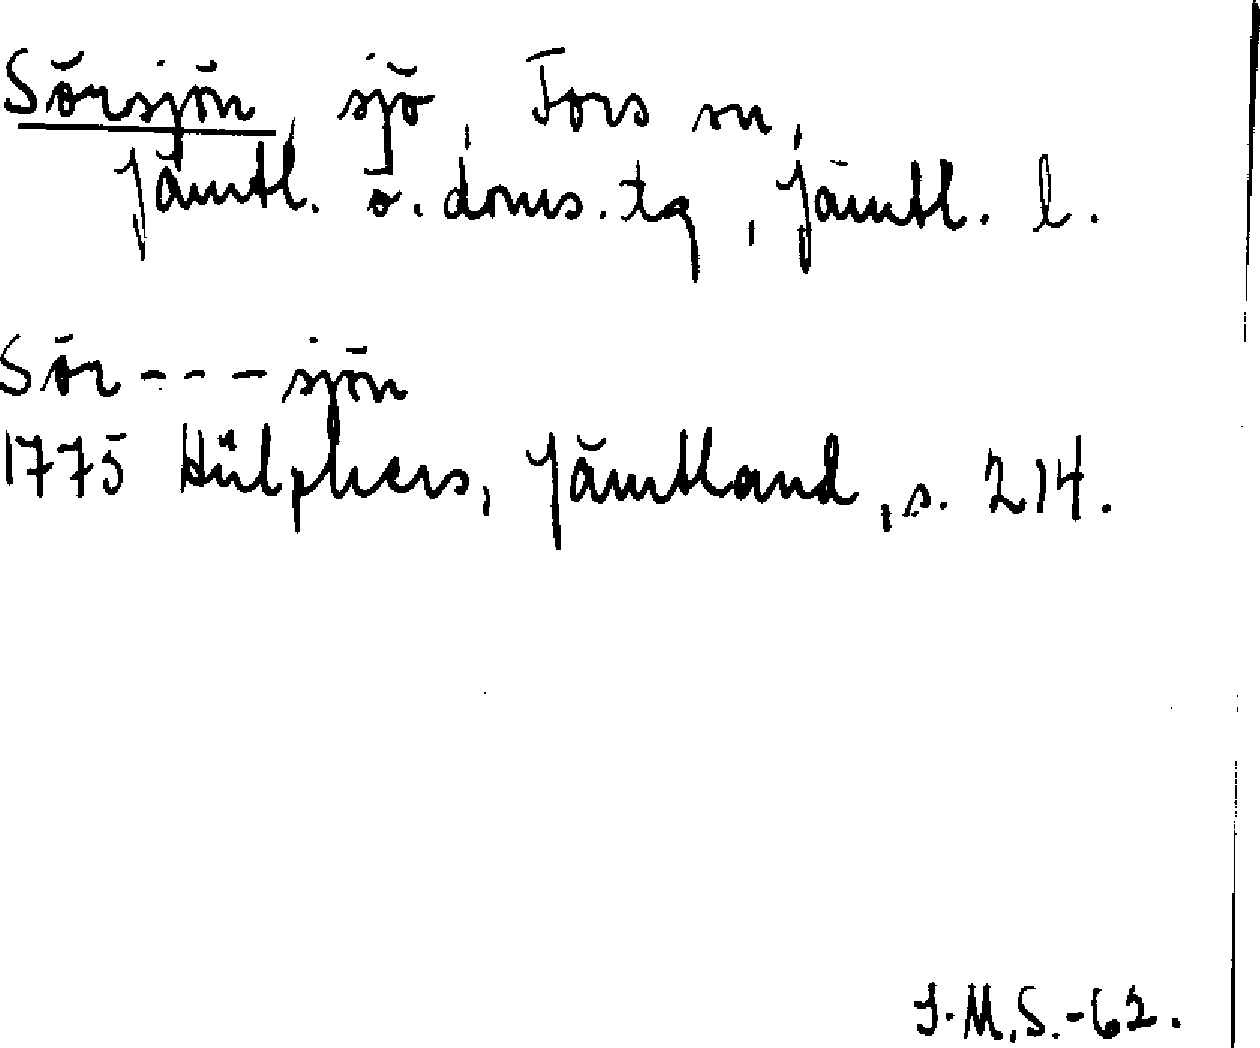 Sörsjön, sjö, Fors sn,
Jämtl. ö. doms. tg, Jämtl. l.
Sör - - - sjön
1775 Hülphers, Jämtland, s. 214.
J.M.S.-62.